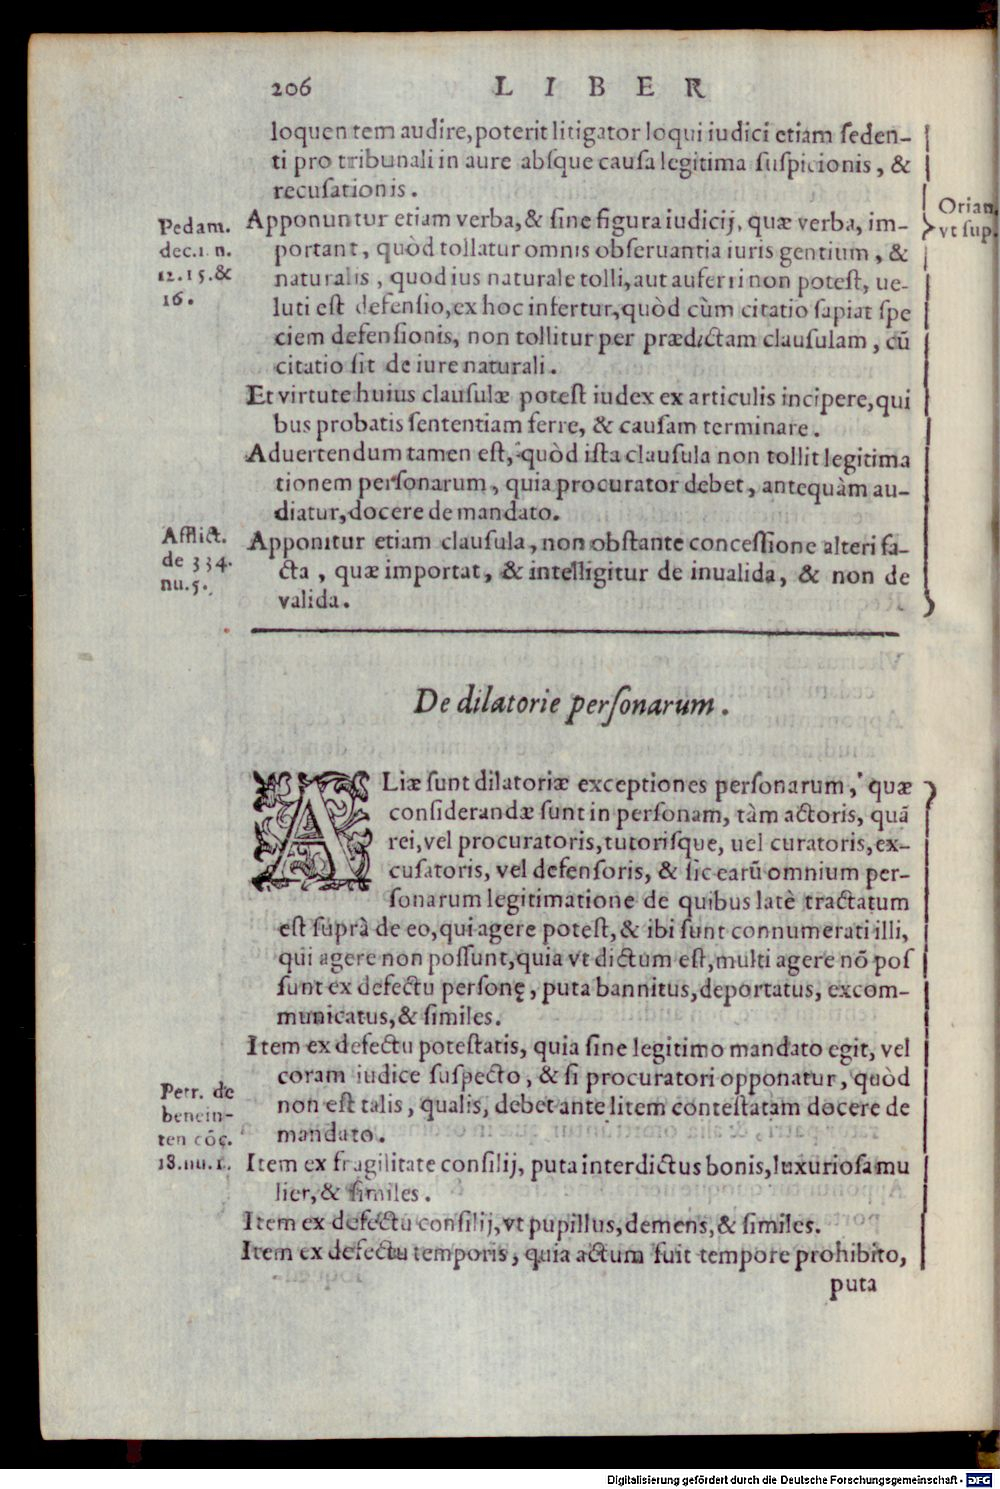 206 LIBER
loquentem audire, poterit litigator loqui iudici etiam seden-
ti pro tribunali in aure absque causa legitima suspicionis, &
recusationis.
Orian.
vt sup.
Pedam.
dec.1 n.
12.15.&
16.
Apponuntur etiam verba, & sine figura iudicij, quæ verba, im-
portant, quòd tollatur omnis obseruantia iuris gentium, &
naturalis, quod ius naturale tolli, aut auferri non potest, ue-
luti est defensio, ex hoc infertur, quòd cùm citatio sapiat spe
ciem defensionis, non tollitur per prædictam clausulam, cū
citatio sit de iure naturali.
Et virtute huius clausulæ potest iudex ex articulis incipere, qui
bus probatis sententiam ferre, & causam terminare.
Aduertendum tamen est, quòd ista clausula non tollit legitima
tionem personarum, quia procurator debet, antequàm au-
diatur, docere de mandato.
Afflict.
de 334.
nu.5.
Apponitur etiam clausula, non obstante concessione alteri fa-
cta, quæ importat, & intelligitur de inualida, & non de
valida.
De dilatorie personarum.
ALiæ sunt dilatoriæ exceptiones personarum, quæ
considerandæ sunt in personam, tàm actoris, quā
rei, vel procuratoris, tutorisque, uel curatoris, ex-
cusatoris, vel defensoris, & sic earū omnium per-
sonarum legitimatione de quibus latè tractatum
est suprà de eo, qui agere potest, & ibi sunt connumerati illi,
qui agere non possunt, quia vt dictum est, multi agere nō pos
sunt ex defectu personę, puta bannitus, deportatus, excom-
municatus, & similes.
Item ex defectu potestatis, quia sine legitimo mandato egit, vel
coram iudice suspecto, & si procuratori opponatur, quòd
non est talis, qualis, debet ante litem contestatam docere de
mandato.
Petr. de
benein-
ten cōc.
18.nu.1.
Item ex fragilitate consilij, puta interdictus bonis, luxuriosa mu
lier, & similes.
Item ex defectu consilij, vt pupillus, demens, & similes.
Item ex defectu temporis, quia actum fuit tempore prohibito,
puta
Digitalisierung gefördert durch die Deutsche Forschungsgemeinschaft - DFG